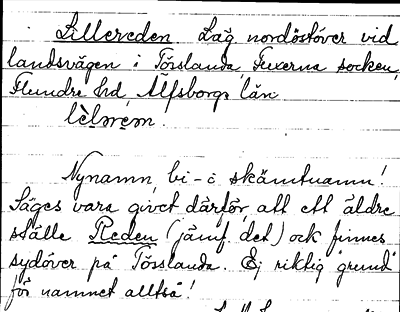 Lillereden Låg nordöstöver vid
landsvägen i Torslanda, Fuxerna socken,
Flundre hd, Älfsborgs län
Nynamn, bi- o skämtnamn!
Säges vara givet därför, att ett äldre
ställe Reden (jämf. det) ock finnes
sydöver på Torslanda. Ej riktig "grund"
för namnet alltså!